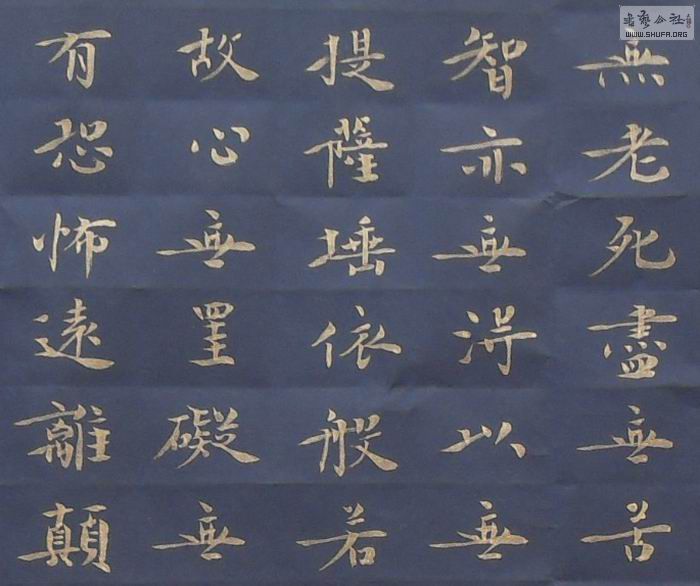 無老死盡無苦
智亦無得以無
提薩埵依般若
故心無罣礙無
有恐怖遠離顛
書藝公社
WWW.SHUFA.ORG